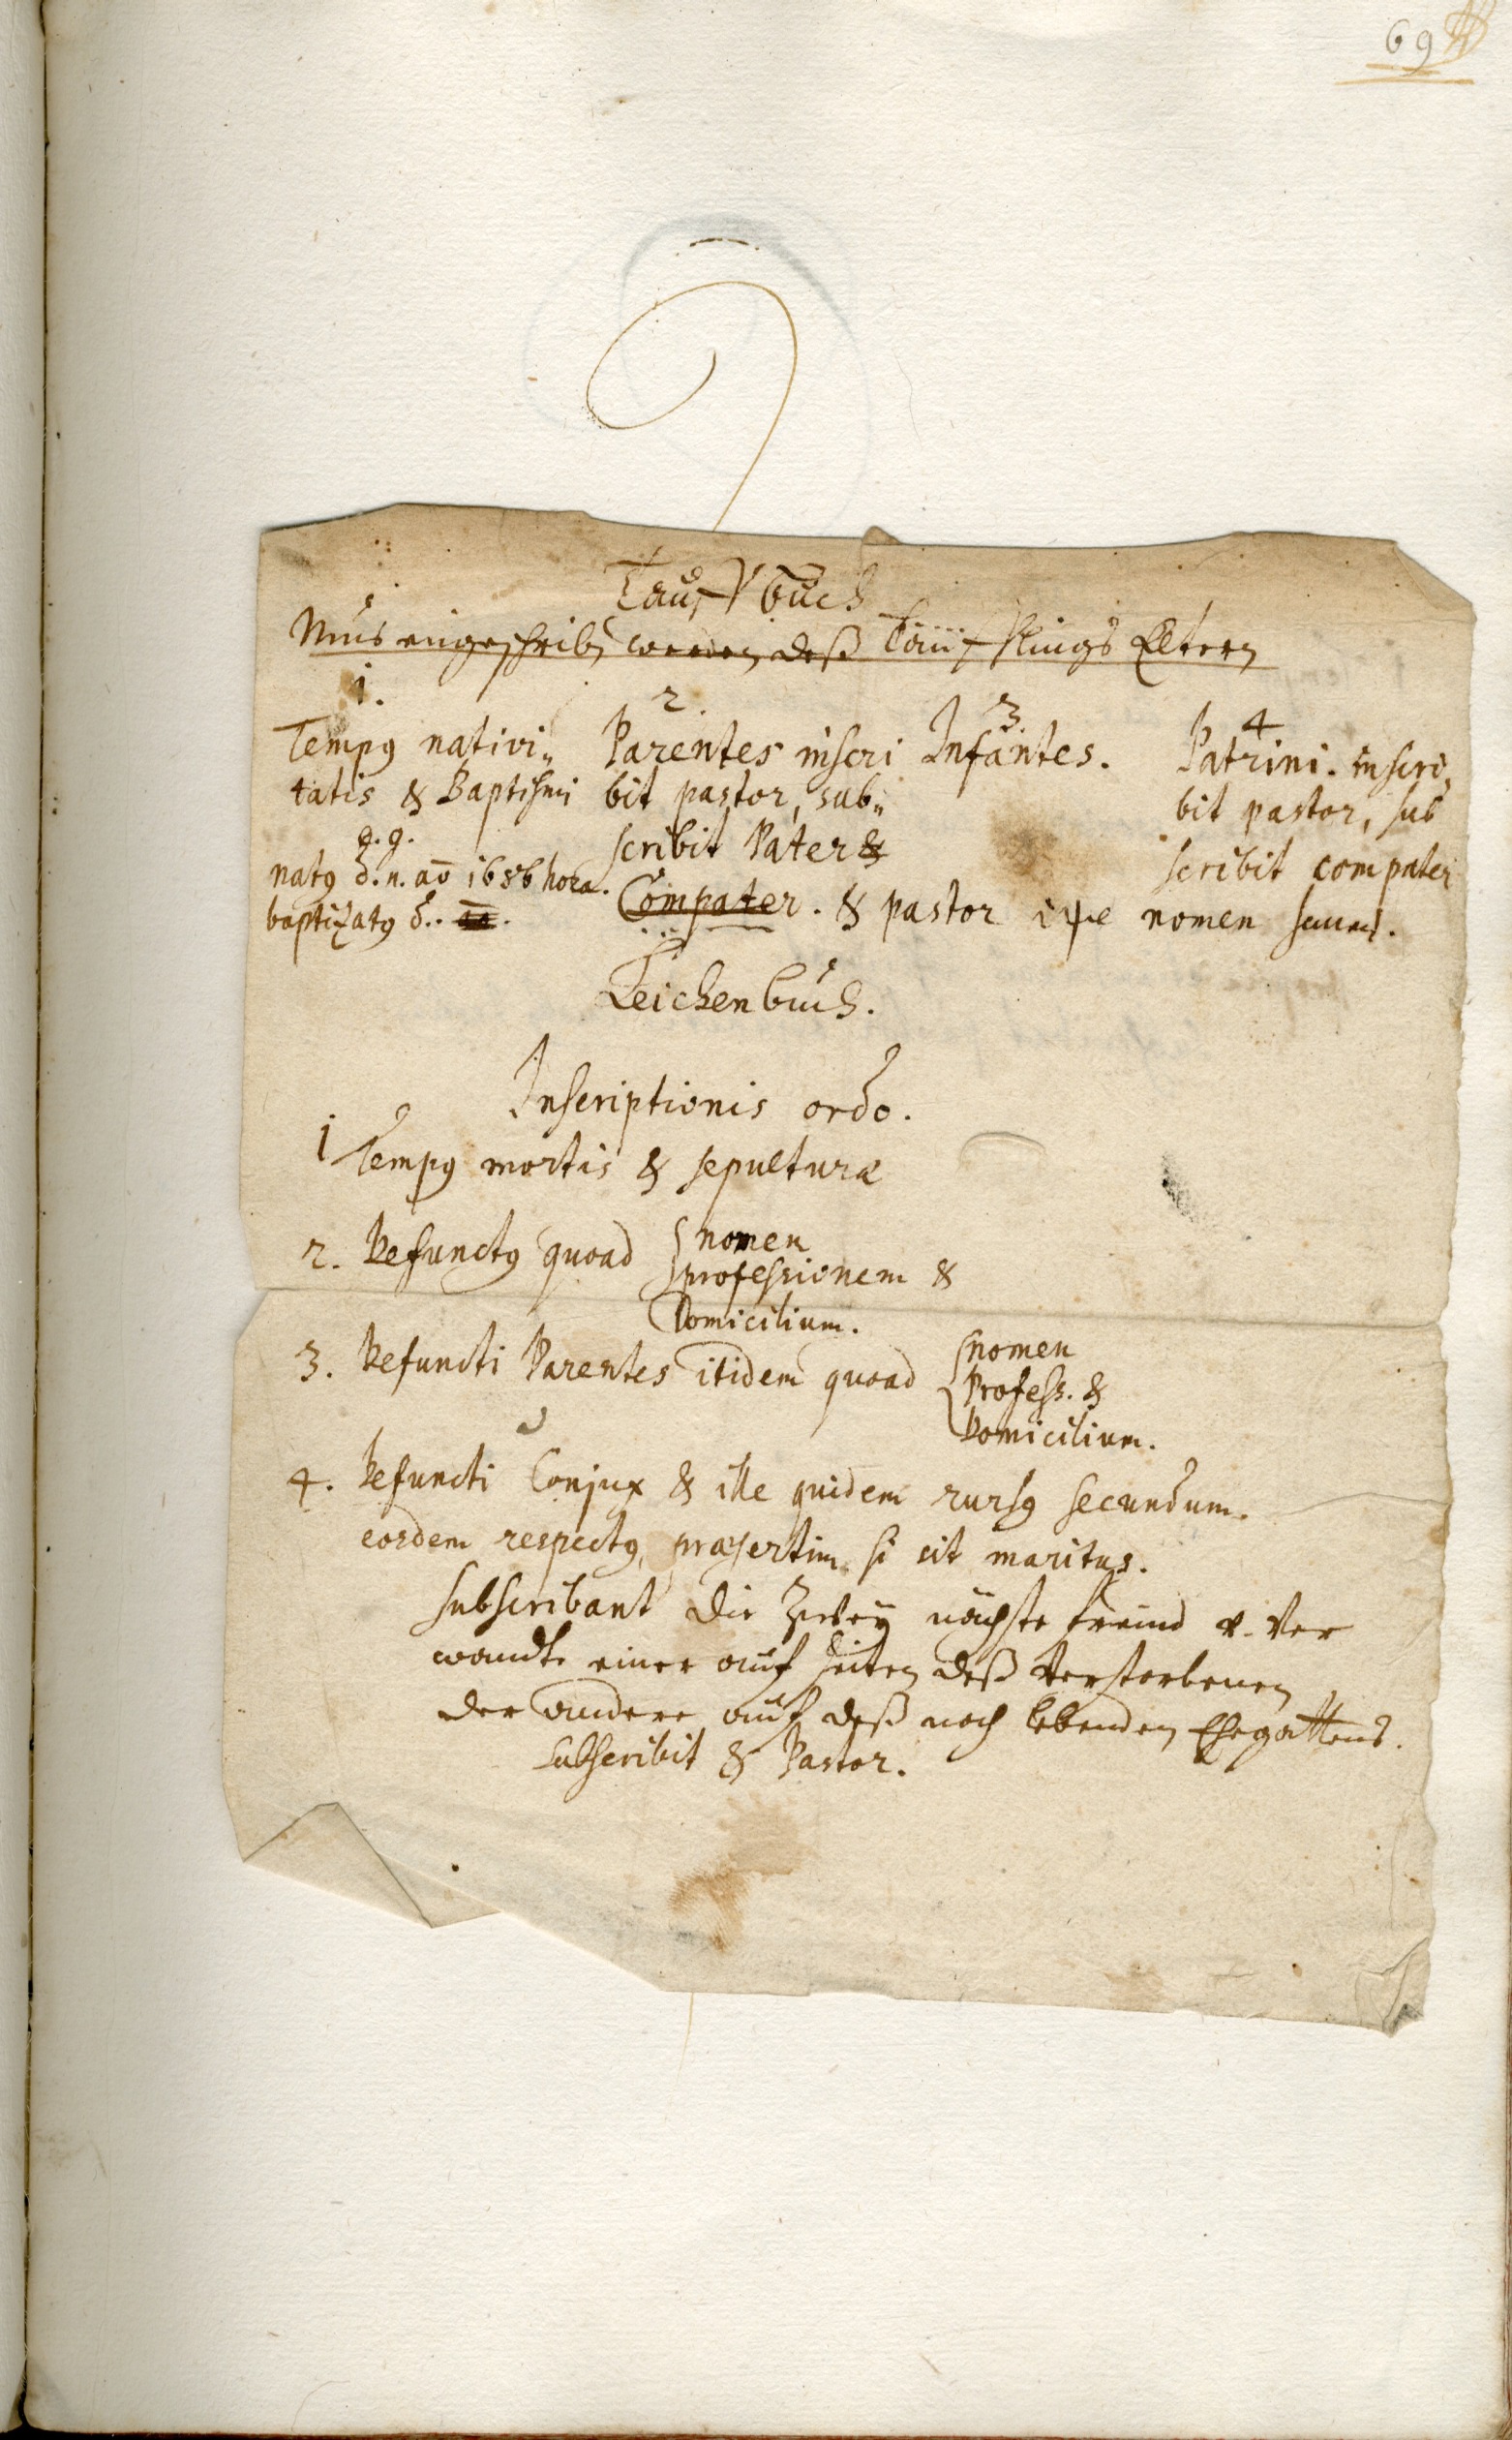 69
Tauffbuch
Mus eingeschriben werden deß Täufflings Eltern
1.
Tempus nativi„
tatis & Baptismi
e. g.
natus d. n. ao 1686 hora.
baptizatus d..
2.
Parentes inscri
bit pastor, sub„
scribit Pater &
Compater. & pastor ipse nomen suum.
3
Infantes.
4
Patrini. inscri„
bit pastor, sub
scribit compater
Leichenbuch.
Inscriptionis ordo.
1 Tempus mortis & sepulturæ
2. Defunctus quoad { nomen
professionem &
Domicilium.
3. Defuncti Parentes itidem quoad { nomen
Profess. &
Domicilium.
4. Defuncti Conjux & ille quidem rursus secundum.
eosdem respectus, præsertim si sit maritus.
subscribant die Zwey nächste freund v. Ver
wandte einer auf seiten deß Verstorbenen
der andere auf deß noch lebenden Ehegattens.
subscribit & Pastor.